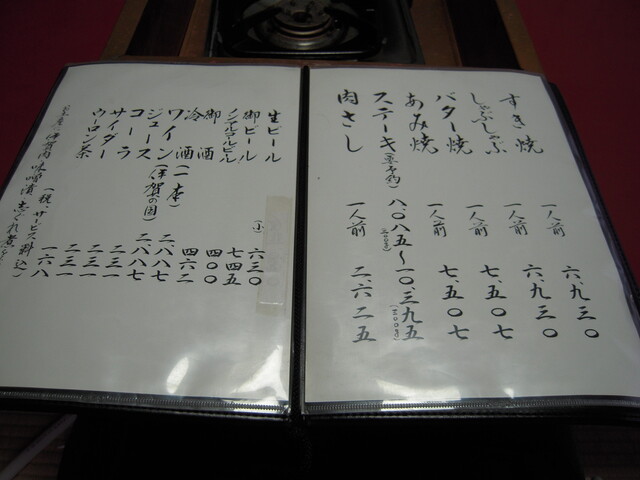 すき焼 一人前 六、九三〇
しゃぶしゃぶ 一人前 六、九三〇
バター焼 一人前 七、五〇七
あみ焼 一人前 七、五〇七
ステーキ(要予約) 八、〇八五〜一〇、三九五
肉さし 一人前 二、六二五
生ビール (小) 六三〇
御ビール 七四五
ノンアルコールビール 四〇〇
御酒 四六二
冷酒(一本) 二、八八七
ワイン(伊賀の国) 二、八八七
ジュース 二三一
コーラ 二三一
サイダー 二三一
ウーロン茶 一六八
(税、サービス料込)
伊賀肉味噌漬 志ぐれ煮